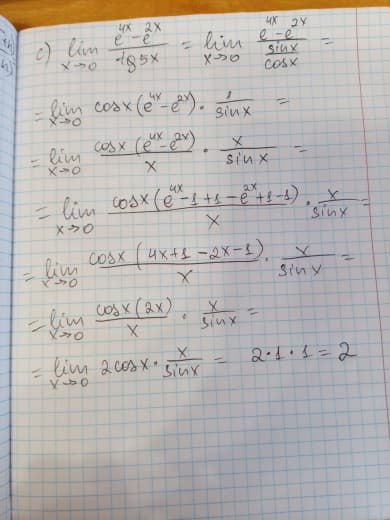 c) lim x→0 (e^4x - e^2x)/(tg5x) = lim x→0 (e^4x - e^2x)/(sinx/cosx) =
= lim x→0 cosx(e^4x - e^2x) · 1/sinx =
= lim x→0 cosx (e^4x - e^2x)/x · x/sinx =
= lim x→0 cosx (e^4x - 1 + 1 - e^2x + 1 - 1)/x · x/sinx =
= lim x→0 cosx (4x + 1 - 2x - 1)/x · x/sinx =
= lim x→0 cosx (2x)/x · x/sinx =
= lim x→0 2cosx · x/sinx = 2·1·1 = 2